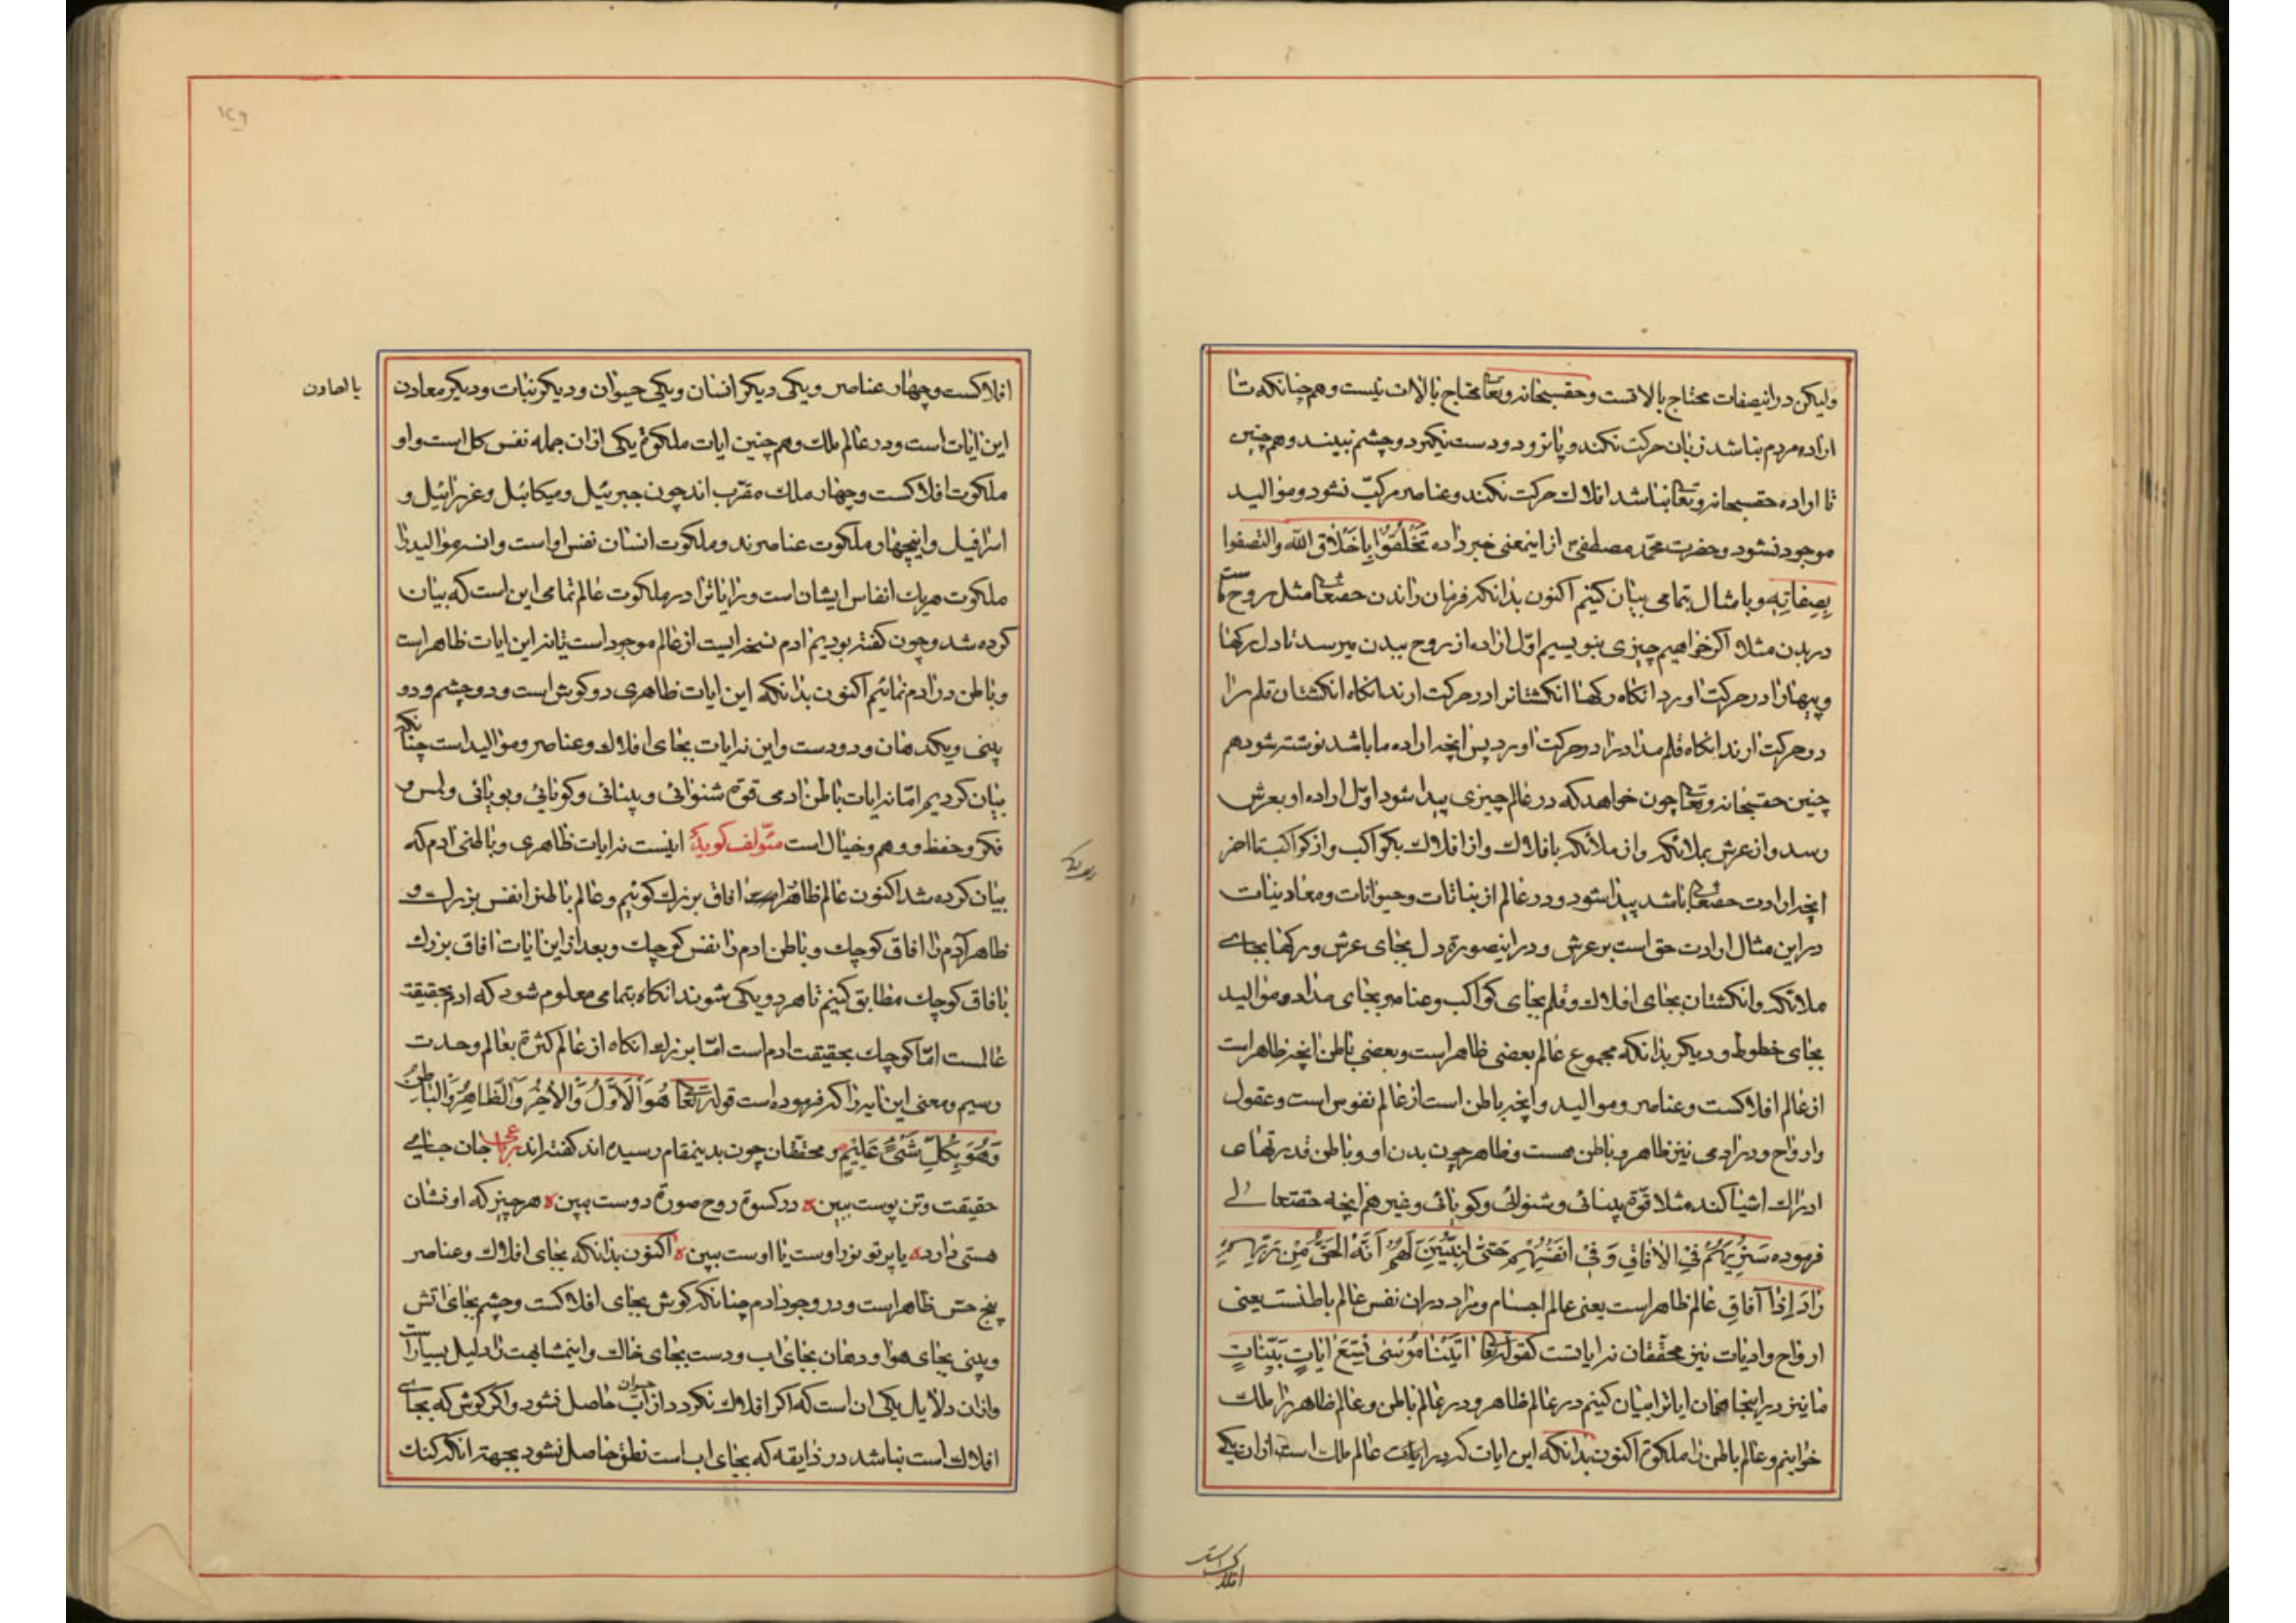 ولیکن در اینصفات محتاج بالاتست و حقسبحانه وتعا محتاج بالات نیست و هم چنانکه تا
اراده مردم نباشد زبان حرکت نکند و پا نرود و دست نگیرد و چشم نبیند و هم چنین
تا اراده حقسبحانه وتعا نباشد افلاک حرکت نکند و عناصر مرکب نشود و موالید
موجود نشود و حضرت محمد مصطفی از اینمعنی خبر داده تَخَلَّقُوا بِاَخْلاقِ اللّه والتصفوا
بِصِفاتِه و با مثال بتمامی بیان کنیم اکنون بدانکه فرمان راندن حقتعا مثل روح ماست
در بدن مثلا اکر خواهیم چیزی بنویسیم اوّل اراده از روح ببدن میرسد تا دل رکها
و پیهارا در حرکت اورد انکاه رکها انکشتانرا در حرکت ارند انکاه انکشتان قلم را
در حرکت ارند انکاه قلم مدادرا در حرکت اورد پس انچه اراده ما باشد نوشته شود هم
چنین حقسبحانه وتعا چون خواهد که در عالم چیزی پیدا شود اوّل اراده او بعرش
رسد و از عرش بملائکه و از ملائکه بافلاک و از افلاک بکواکب و از کواکب تا اخر
انچه ارادت حقتعا باشد پیدا شود و در عالم از نباتات و حیوانات و معادنیات
در این مثال ارادت حق است بر عرش و در اینصورة دل بجای عرش و رکها بجای
ملائکه و انکشتان بجای افلاک و قلم بجای کواکب و عناصر بجای مداد و موالید
بجای خطوط و دیکر بدانکه مجموع عالم بعضی ظاهر است و بعضی باطن انچه ظاهر است
از عالم افلاکست و عناصر و موالید و انچه باطن است از عالم نفوس است و عقول
و ارواح و در ادمی نیز ظاهر و باطن هست و ظاهر چون بدن او و باطن قدرتهای
ادراک اشیا کنده مثلا قوّة بینائی و شنوائی و کویائی و غیر هم انچه حقتعالی
فرموده سَنُریهِمْ فِی الافاقِ وَ فی اَنْفُسِهِمْ حَتّی یَتَبَیَّنَ لَهُمْ اَنَّهُ الْحَقُّ مِنْ رَبِّهِمْ
آفاقِ عالم ظاهر است یعنی عالم اجسام و مراد در ان نفس عالم باطنست یعنی
ارواح وادیات نیز محققان نه ایاتست کقوله تعا اتَیْنا مُوسی تِسْعَ ایاتٍ بَیِّناتٍ
ما نیز در اینجا همان ایاترا بیان کنیم در عالم ظاهر و در عالم باطن و عالم ظاهر را ملک
خوانیم و عالم باطن را ملکوة اکنون بدانکه این ایات که در ایات عالم ملک است ازان یکی
افلاک است
افلاکست و چهار عناصر و یکی دیکر انسان و یکی حیوان و دیکر نبات و دیکر معادن
این ایات است و در عالم ملک و هم چنین ایات ملکوة یکی ازان جمله نفس کل است و او
ملکوت افلاکست و چهار ملک مقرّب اند چون جبرئیل و میکائیل و عزرائیل و
اسرافیل و اینچهار ملکوت عناصرند و ملکوت انسان نفس او است و انسه موالید را
ملکوت هریک انفاس ایشان است و نه ایاترا در ملکوت عالم تمامی این است که بیان
کرده شد و چون کفته بودیم ادم نسخه ایست از عالم موجود است تا نه این ایات ظاهر است
و باطن در ادم نمائیم اکنون بدانکه این ایات ظاهری دو کوش است و دو چشم و دو
بینی و یکدهان و دو دست و این نه ایات بجای افلاک و عناصر و موالید است چنانکه
بیان کردیم امّا نه ایات باطن ادمی قوة شنوائی و بینائی و کویائی و بویائی و لمس و
فکر و حفظ و وهم و خیال است مؤلف کوید اینست نه ایات ظاهری و باطنی ادم که
بیان کرده شد اکنون عالم ظاهرا افاق بزرک کوئیم و عالم باطنرا نفس بزرک و
ظاهر آدم را افاق کوچک و باطن ادم را نفس کوچک و بعد از این ایات افاق بزرک
با افاق کوچک مطابق کنیم تا هر دو یکی شوند انکاه بتمامی معلوم شود که ادم بحقیقة
عالمست امّا کوچک بحقیقت ادم است امّا بزرک انکاه از عالم کثرة بعالم وحدت
رسیم و معنی این ایه را که فرموده است قوله تعا هُوَ الاَوَّلُ وَالاخِرُ وَالظّاهِرُ وَالْباطِنُ
وَهُوَ بِکُلِّ شَیْئٍ عَلیمٍ و محققان چون بدینمقام رسیده اند کفته اند جان جانی
حقیقت وتن پوست ببین ٥ در کسوة روح صورة دوست ببین ٥ هر چیز که او نشان
هستی دارد ٥ یا پرتو نور اوست یا اوست ببین ٥ اکنون بدانکه بجای افلاک و عناصر
پنج حسّ ظاهر است و در وجود ادم چنانکه کوش بجای افلاکست و چشم بجای اتش
و بینی بجای هوا و دهان بجای اب و دست بجای خاک و اینمشابهت را دلیل بسیار است
و ازان دلایل یکی ان است که اکر افلاک نکردد از اب حیوان حاصل نشود و اکر کوش که بجای
افلاک است نباشد در ذایقه که بجای اب است نطق حاصل نشود بجهة انکه کنک